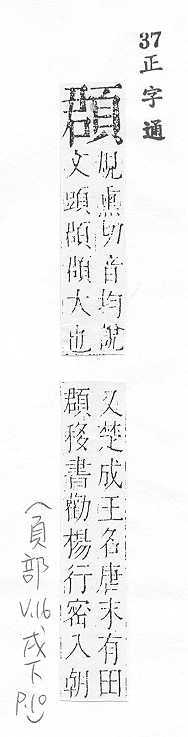 37 正字通
頵
規熏切音均說
文頭頵頵大也
又楚成王名唐末有田
頵移書勸楊行密入朝
(頁部 V.16, 戌下 P.10)